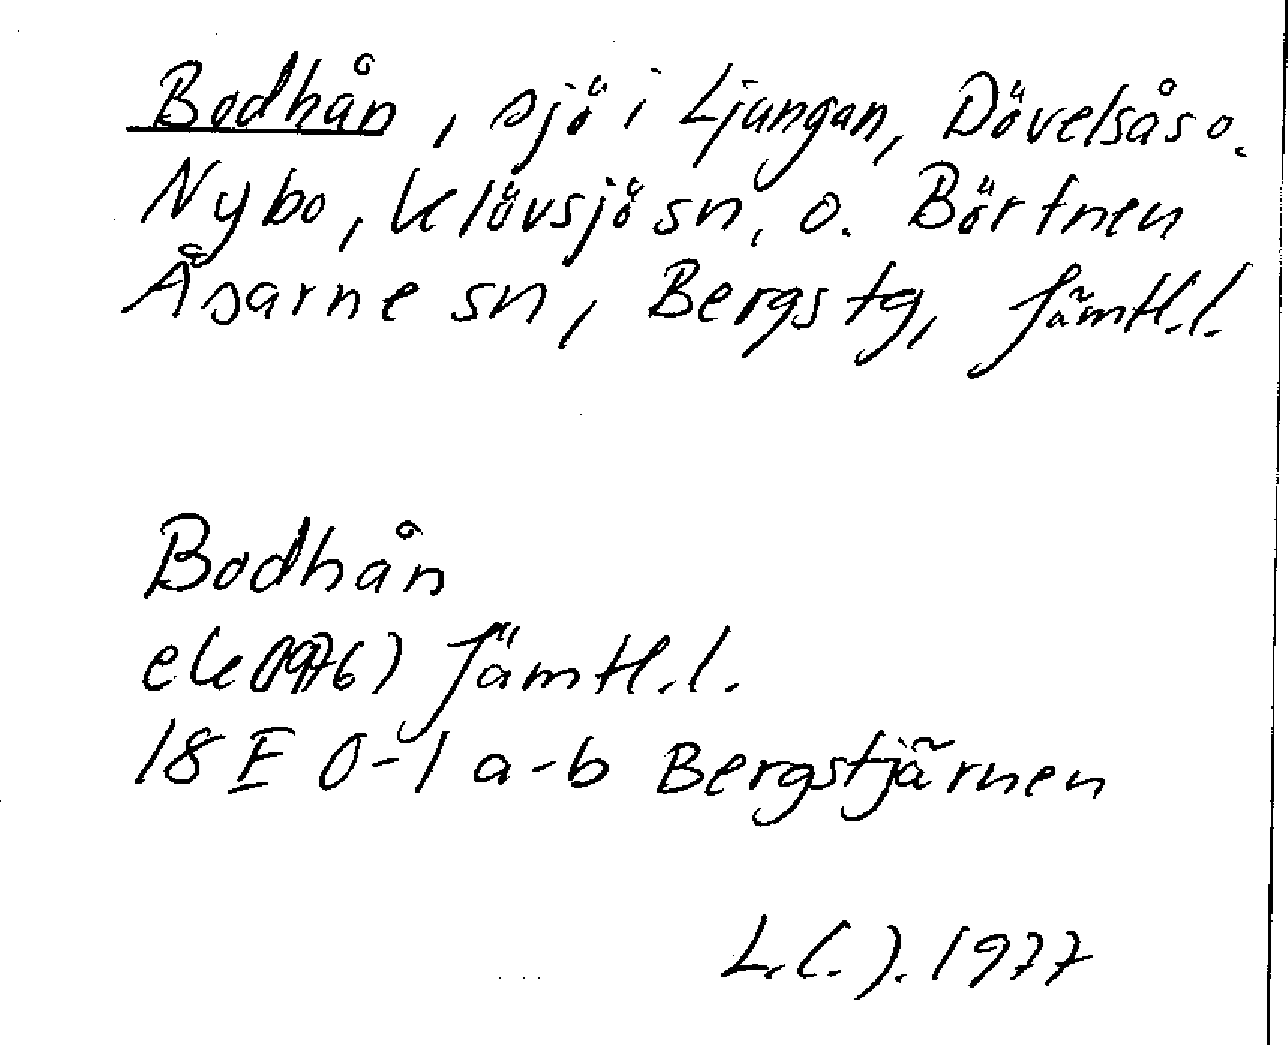 Bodhån, sjö i Ljungan, Dövelsås o.
Nybo, Klövsjö sn, o. Börtnen
Åsarne sn, Bergs tg, Jämtl.l.
Bodhån
ek(1976) Jämtl.l.
18 E 0-1 a-b Bergstjärnen
L.(.). 1977